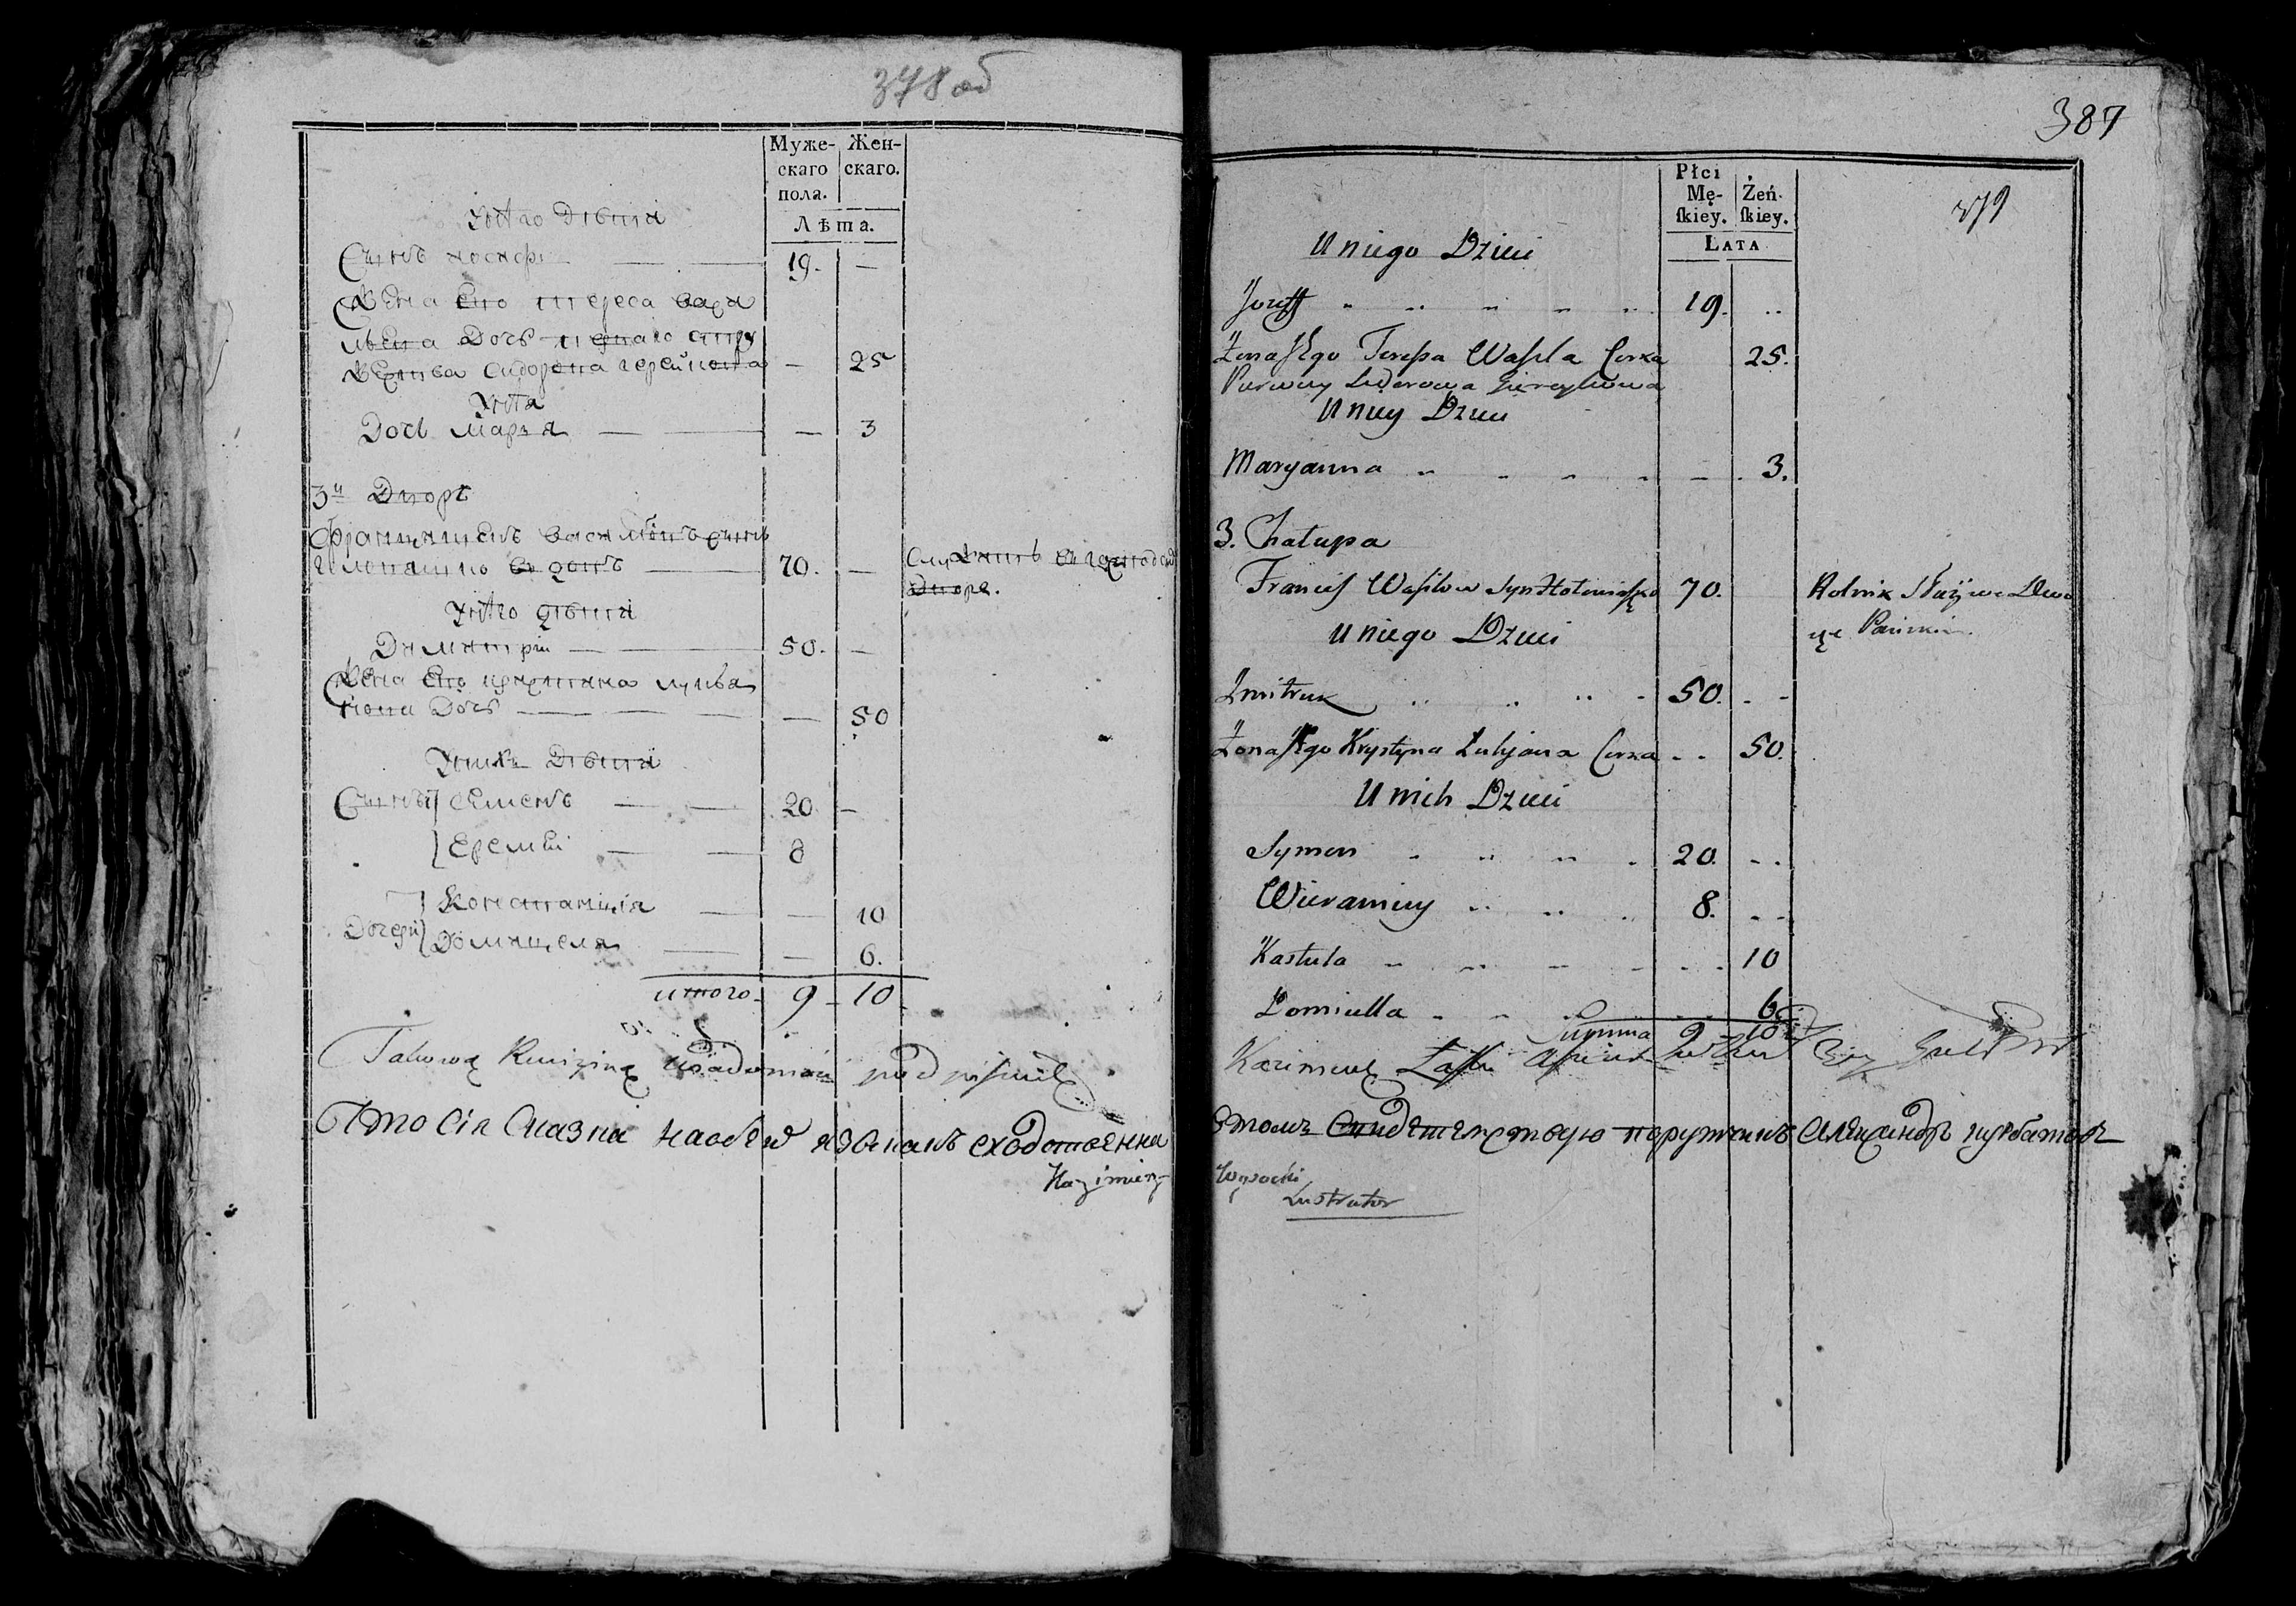 378 об
Муже-
скаго
пола.
Жен-
скаго.
Лѣта.
У него Дѣти
Сынъ иосифъ — — 19. —
Жена Его тереса васи
льева дочь
— 25
У нея
Дочь Марья — — — 3
3й Дворъ
Францишекъ васильевъ сынъ
вдовъ — 70. —
служитъ
Дворе.
У него дѣти
Димитрій — — 50. —
Жена Его христина лукья
нова Дочь — — — 50
У нихъ Дѣти
Сыны семенъ — — 20. —
Еремѣй — — 8
Дочери Констанція — — 10
Домицеля — — 6.
итого 9 10
Takową Rewizing podpisuię
Что Сія Сказка на обеих языкахъ сходственна
Kazimierz
387
379
Płci
Mę-
ſkiey.
Żeń-
ſkiey.
LATA
U niego Dzieci
Jozeff 19. ..
Żona Jego Teressa Wasila Corka 25.
Pierwey Sidorowa
U niey Dzieci
Maryanna 3.
3. Chałupa
Francis Wasilow Syn 70. Rolnik Służy we Dwo
rze Pańskim.
U niego Dzieci
Zmitruk 50. - -
Żona Jego Krystyna Łukjana Corka - - 50.
U nich Dzieci
Symon 20. - -
Wieramiey 8. - -
Kastula 10
Domicella 6.
Summa 9 10
Kazimierz
Втомъ Свидетельствую порутчикъ Александръ курбатовъ
Wysocki
Lustrator